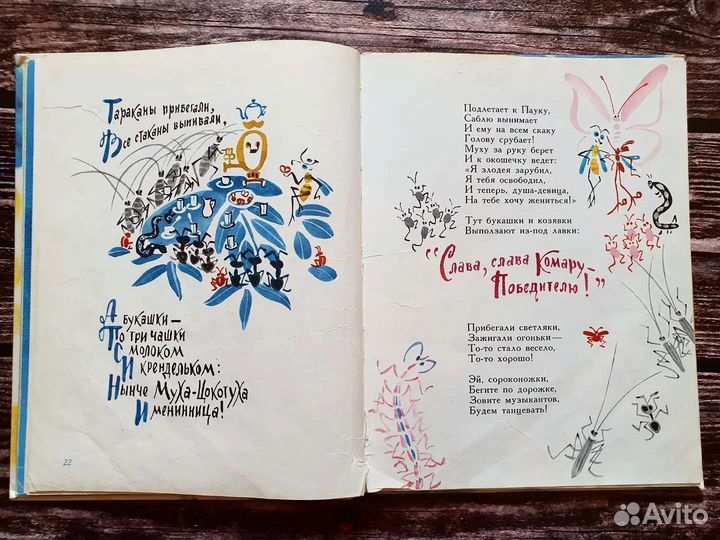 Тараканы прибегали,
Все стаканы выпивали,
А букашки—
По три чашки
С молоком
И крендельком:
Нынче Муха-Цокотуха
Именинница!
22
Подлетает к Пауку,
Саблю вынимает
И ему на всем скаку
Голову срубает!
Муху за руку берет
И к окошечку ведет:
«Я злодея зарубил,
Я тебя освободил,
И теперь, душа-девица,
На тебе хочу жениться!»
Тут букашки и козявки
Выползают из-под лавки:
“Слава, слава Комару-
Победителю!”
Прибегали светляки,
Зажигали огоньки—
То-то стало весело,
То-то хорошо!
Эй, сороконожки,
Бегите по дорожке,
Зовите музыкантов,
Будем танцевать!
Avito